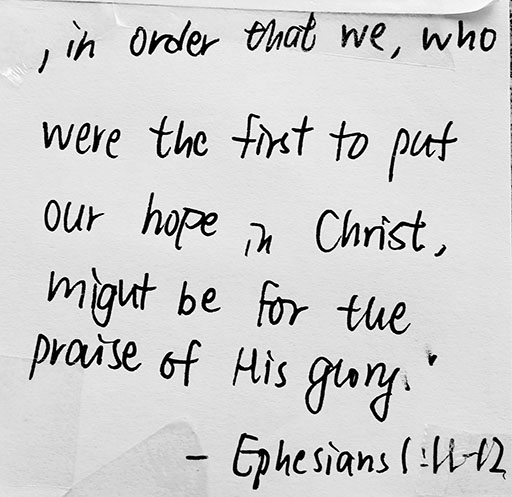 , in order that we, who
were the first to put
our hope in Christ,
might be for the
praise of His glory.'
- Ephesians 1:11-12